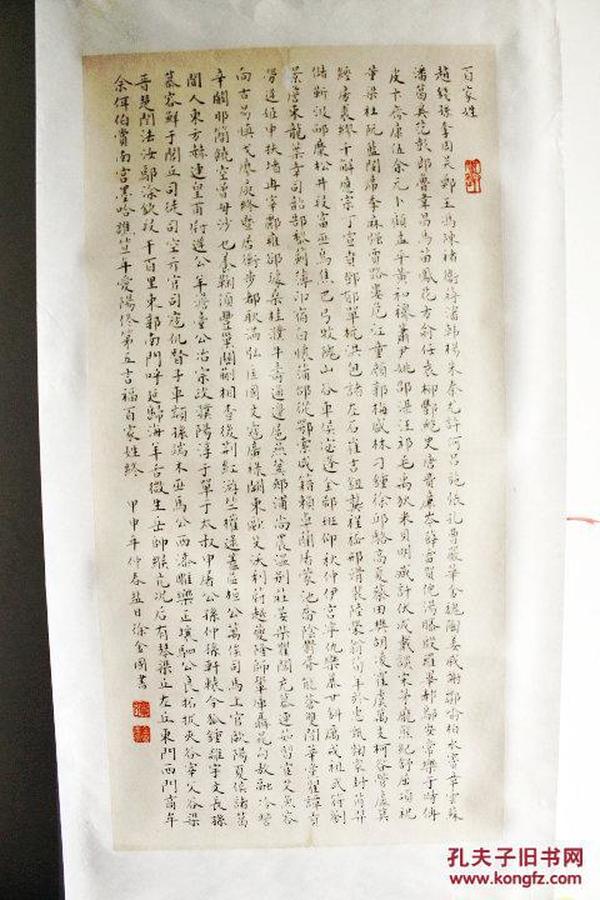 百家姓
趙錢孫李周吳鄭王馮陳褚衛蔣潘韓楊朱秦尤許何呂施張孔曹嚴華金魏陶姜戚謝鄒喻柏水竇章雲蘇
潘葛奚范彭郎魯韋昌馬苗鳳花方俞任袁柳酆鮑史唐費廉岑薛雷賀倪湯滕殷羅畢郝鄔安常樂于時傅
皮卞齊康伍余元卜顧孟平黃和穆蕭尹姚邵湛汪祁毛禹狄米貝明臧計伏成戴談宋茅龐熊紀舒屈項祝
董梁杜阮藍閔席季麻強賈路婁危江童顏郭梅盛林刁鍾徐邱駱高夏蔡田樊胡凌霍虞萬支柯昝管盧莫
經房裘繆干解應宗丁宣賁鄧郁單杭洪包諸左石崔吉鈕龔程嵇邢滑裴陸榮翁荀羊於惠甄麴家封芮羿
儲靳汲邴糜松井段富巫烏焦巴弓牧隗山谷車侯宓蓬全郗班仰秋仲伊宮寧仇欒暴甘鈄厲戎祖武符劉
景詹束龍葉幸司韶郜黎薊薄印宿白懷蒲邰從鄂索咸籍賴卓藺屠蒙池喬陰鬱胥能蒼雙聞莘党翟譚貢
勞逄姬申扶堵冉宰酈雍郤璩桑桂濮牛壽通邊扈燕冀郟浦尚農溫別莊晏柴瞿閻充慕連茹習宦艾魚容
向古易慎戈廖庾終暨居衡步都耿滿弘匡國文寇廣祿闕東歐殳沃利蔚越夔隆師鞏厙聶晁勾敖融冷訾
辛闞那簡饒空曾毋沙乜養鞠須豐巢關蒯相查後荊紅游竺權逯蓋益桓公萬俟司馬上官歐陽夏侯諸葛
聞人東方赫連皇甫尉遲公羊澹臺公冶宗政濮陽淳于單于太叔申屠公孫仲孫軒轅令狐鍾離宇文長孫
慕容鮮于閭丘司徒司空亓官司寇仉督子車顓孫端木巫馬公西漆雕樂正壤駟公良拓拔夾谷宰父谷梁
晉楚閆法汝鄢涂欽段干百里東郭南門呼延歸海羊舌微生岳帥緱亢況后有琴梁丘左丘東門西門商牟
佘佴伯賞南宮墨哈譙笪年愛陽佟第五言福百家姓終 甲申年仲春益日徐金國書
孔夫子旧书网
www.kongfz.com